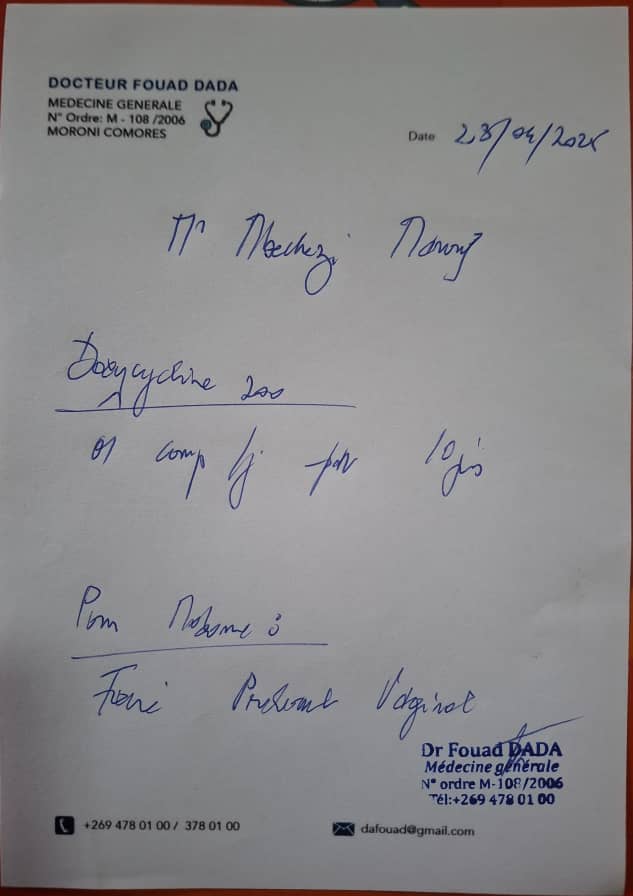 DOCTEUR FOUAD DADA
MEDECINE GENERALE
N° Ordre: M - 108 /2006
MORONI COMORES
Date 23/04/202
Mr
Doxycycline 200
01 comp /j pdt 10 jrs
Pour Madame :
Faire Prelevmt Vaginal
Dr Fouad DADA
Médecine générale
N° ordre M-108/2006
Tél:+269 478 01 00
+269 478 01 00 / 378 01 00
dafouad@gmail.com